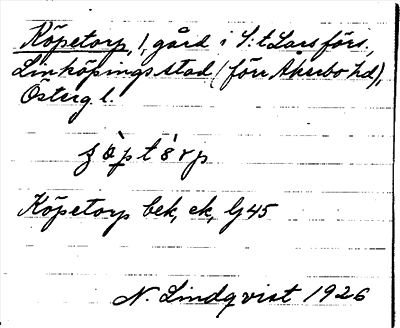 Köpetorp, 1, gård i S:t Lars förs,
Linköpings stad (förr Åkerbo hd),
Österg. l.
Köpetorp bek, ek, Gj 45
N. Lindqvist 1926